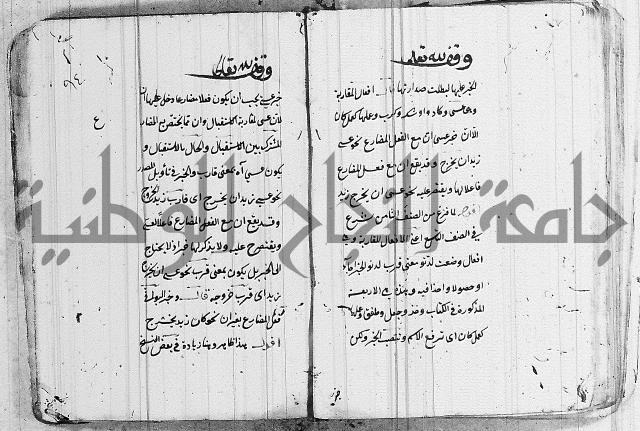 وقف لله تعالى
الخبر عليها لبطلت صدارتها قال افعال المقاربة
وهي عسى وكاد واوشك وكرب وعملها كعمل كان
الا ان خبر عسى ان مع الفعل المضارع نحو عسى
زيد ان يخرج وقد يقع ان مع فعل المضارع
فاعلا لها ويقتصر عليه نحو عسى ان يخرج زيد
اقول لما فرغ من الصنف الثامن شرع
في الصنف التاسع اعنى الافعال المقاربة وهي
افعال وضعت لدنو معنى قرب لدنو الخبر رجاء
او حصولا واخذا فيه وهذه هي الاربعة
المذكورة في الكتاب وقد وجعل وطفق وعملها
كعمل كان اى ترفع الاسم وتنصب الخبر ولكن
وقف لله تعالى
خبر عسى يجب ان يكون فعلا مضارعا دخل عليها ان
لان عسى لمقاربة الاستقبال وان قد تختص بع المضارع
المشترك بين الاستقبال والحال بالاستقبال و
يكون عسى اه بمعنى قارب والخبر في تأويل المصدر
نحو عسى زيد ان يخرج اى قارب زيد الخروج
وقد يقع ان مع الفعل المضارع فاعلا لعسى
ويقتصر عليه ولا يذكر لها خبر اذ لا يحتاج
الى الخبر بل يكون بمعنى قرب نحو عسى ان يخرج
زيد اى قرب خروجه قال وخبر البواقى
فعل المضارع بغير ان نحو كاد زيد يخرج
اقول هذا ظاهر وهنا زيادة في بعض النسخ
جامعة النجاح الوطنية